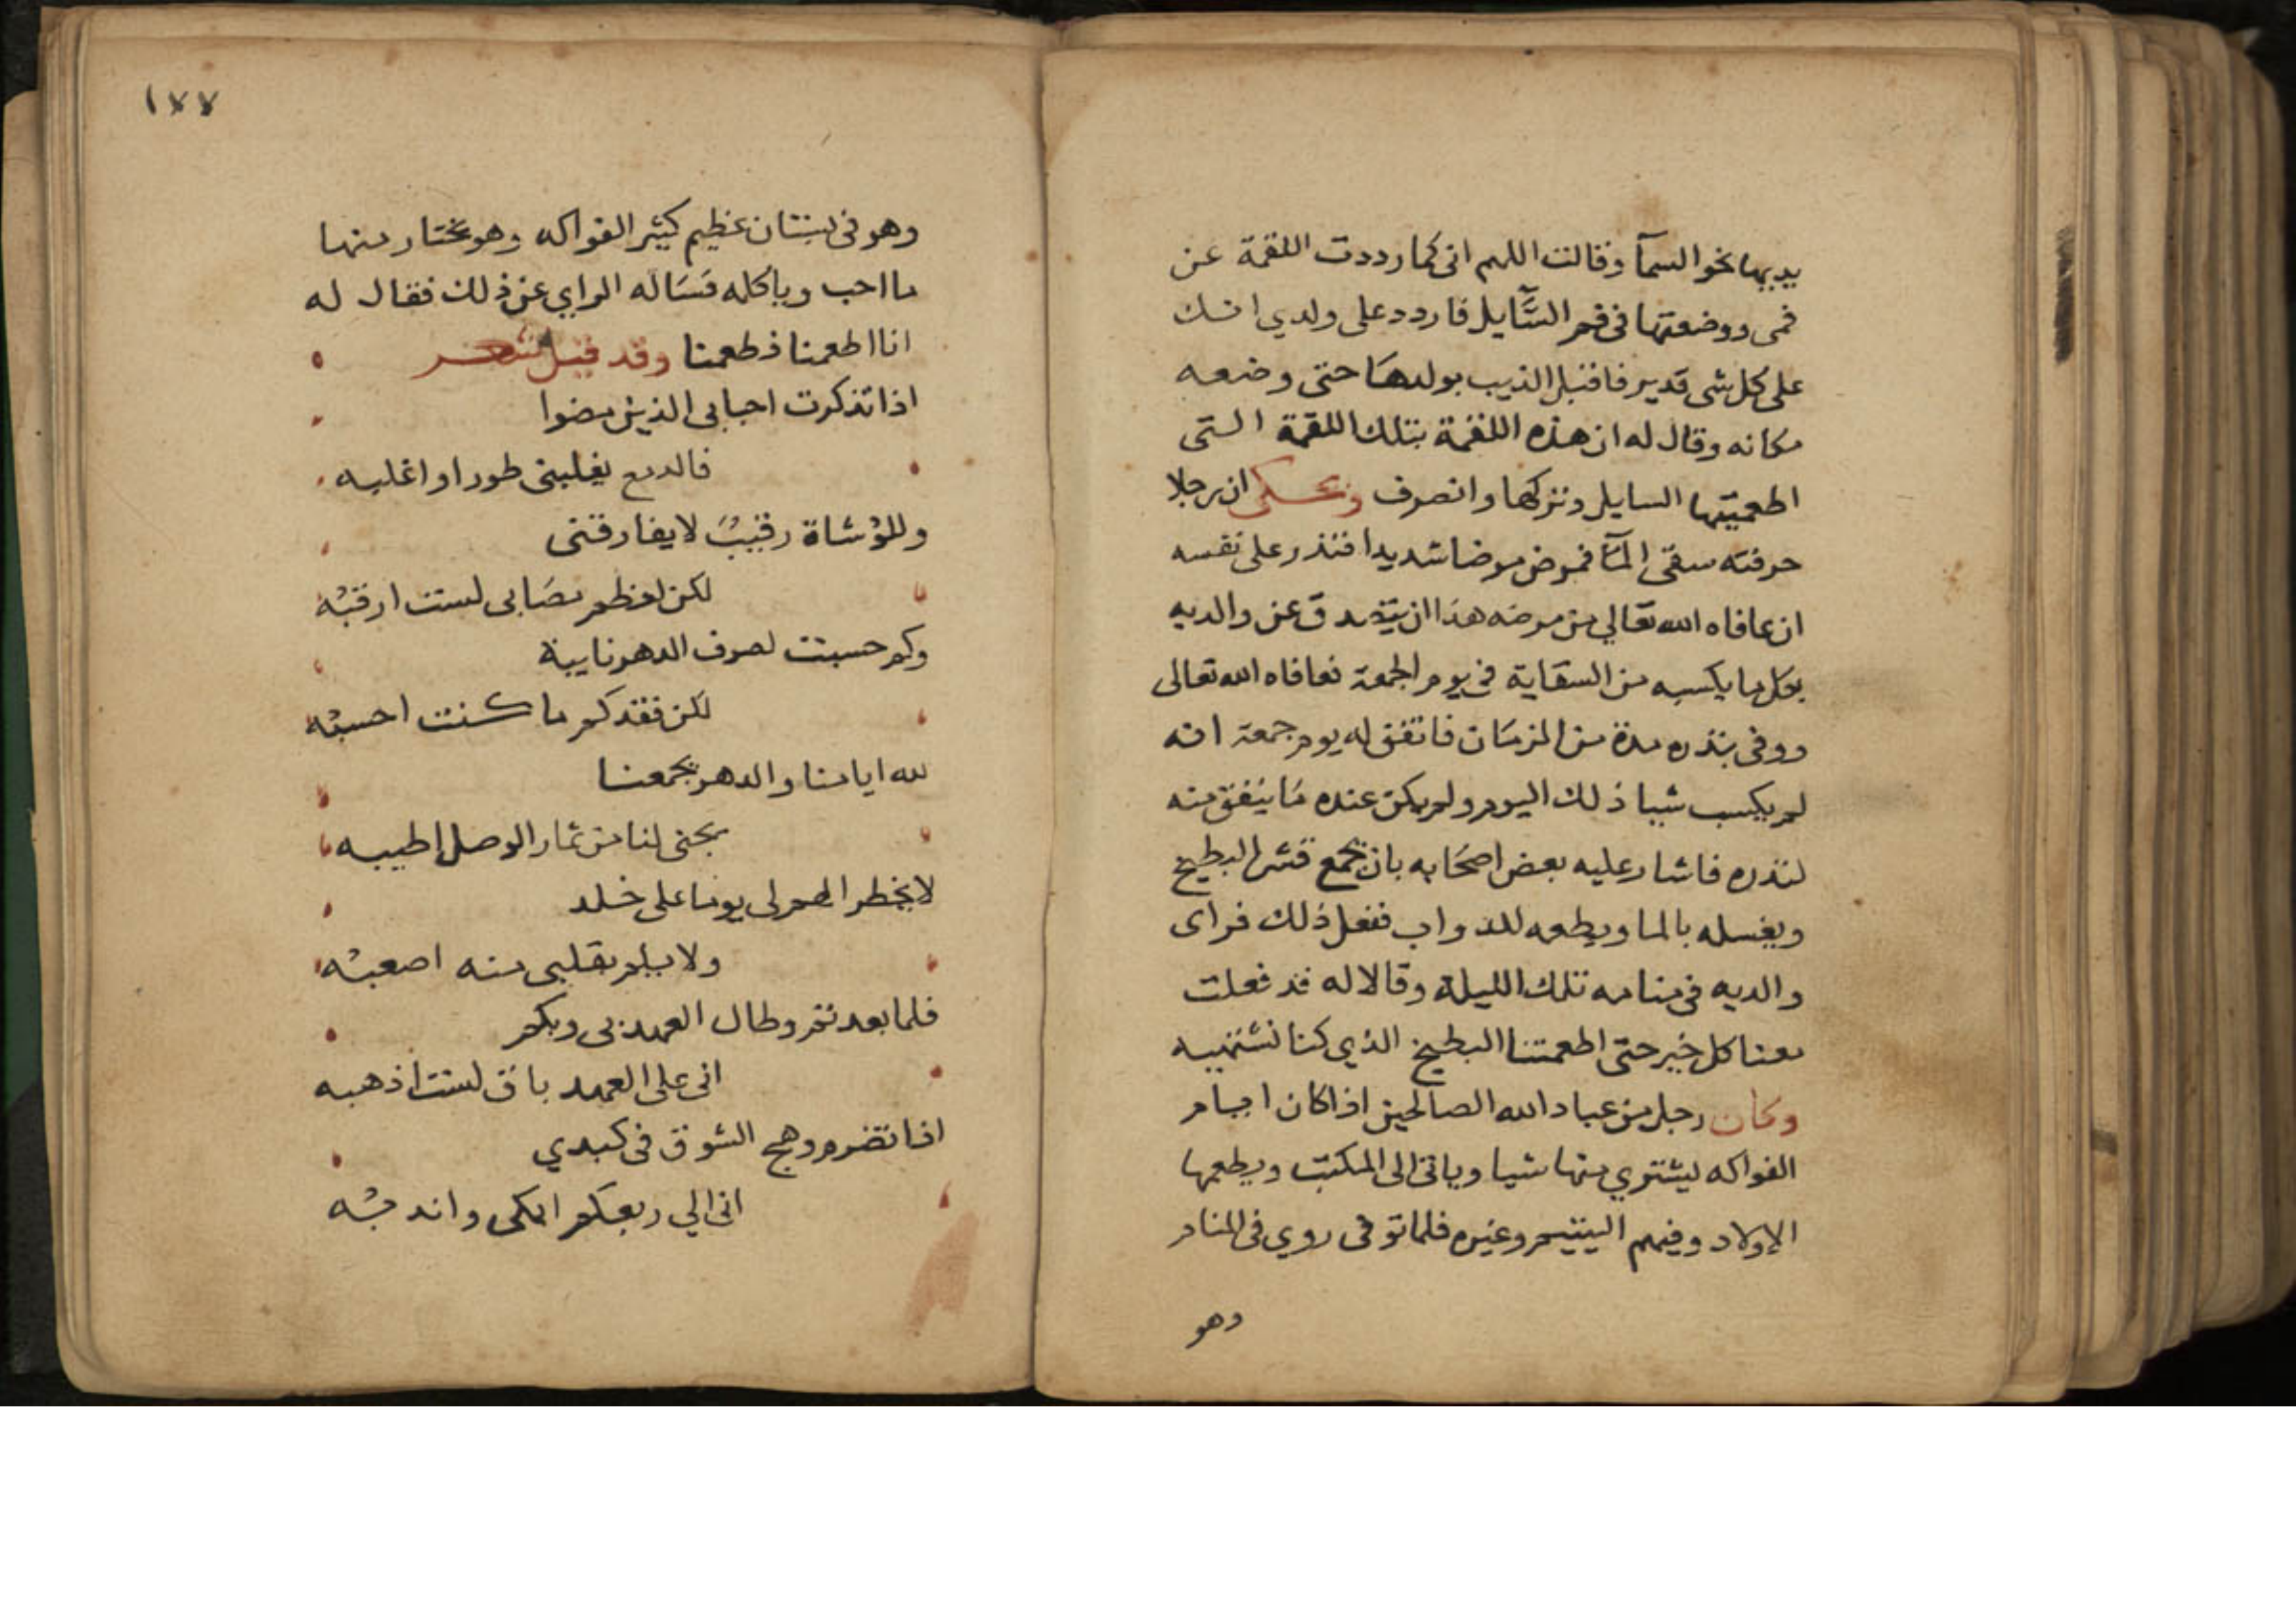 يديها نحو السمآ وقالت اللهم اني كما رددت اللقمة عن
فمى ووضعتها فى فم السَّآيل فاردد على ولدي انك
على كل شى قدير فاقبل الذيب بولدها حتى وضعه
مكانه وقال له ان هذه اللقمة بتلك اللقمة التى
اطعميتها السايل وتركها وانصرف ويحكى ان رجلا
حرفته سقى المآ فمرض مرضا شديدا فنذر على نفسه
ان عافاه الله تعالي من مرضه هذا ان يتصدق عن والديه
بكل ما يكسبه من السقاية فى يوم الجمعة فعافاه الله تعالى
ووفى بنذره مدة من الزمان فاتفق له يوم جمعة انه
لم يكسب شيا ذلك اليوم ولم يكن عنده ما ينفق منه
لنذره فاشار عليه بعض اصحابه بان يجمع قشر البطيخ
ويغسله بالما ويطعمه للدواب ففعل ذلك فراى
والديه فى منامه تلك الليلة وقالا له قد فعلت
معنا كل خير حتى اطعمتنا البطيخ الذي كنا نشتهيه
وكان رجل من عباد الله الصالحين اذا كان ايام
الفواكه ليشتري منها شيا وياتى الى المكتب ويطعمها
الاولاد وفيهم اليتيم وغيره فلما توفى روي فى المنام
وهو
١٧٧
وهو فى بستان عظيم كثير الفواكه وهو يختار منها
ما احب وياكله فسَاله الراىي عن ذلك فقال له
انا اطعمنا فطعمنا وقد قيل شعر
اذا تذكرت احبابى الذين مضوا
فالدمع يغلبنى طورا واغلبه
وللوُشاة رقيبٌ لا يفارقنى
لكن لعظم مصَابى لست ارقبُه
وكم حسبت لصرف الدهر نايبة
لكن فقدكم ما كنت احسبُه
لله ايامنا والدهر يجمعنا
يجنى لنا من ثمار الوصل اطيبه
لا يخطر الهم لى يوما على خلد
ولا يلم بقلبى منه اصعبُه
فلما بعدتم وطال العهد بى وبكم
انى على العهد باق لست اذهبه
اذا تضرم وهج الشوق فى كبدي
انى الي ربعكم ابكى واندبُه